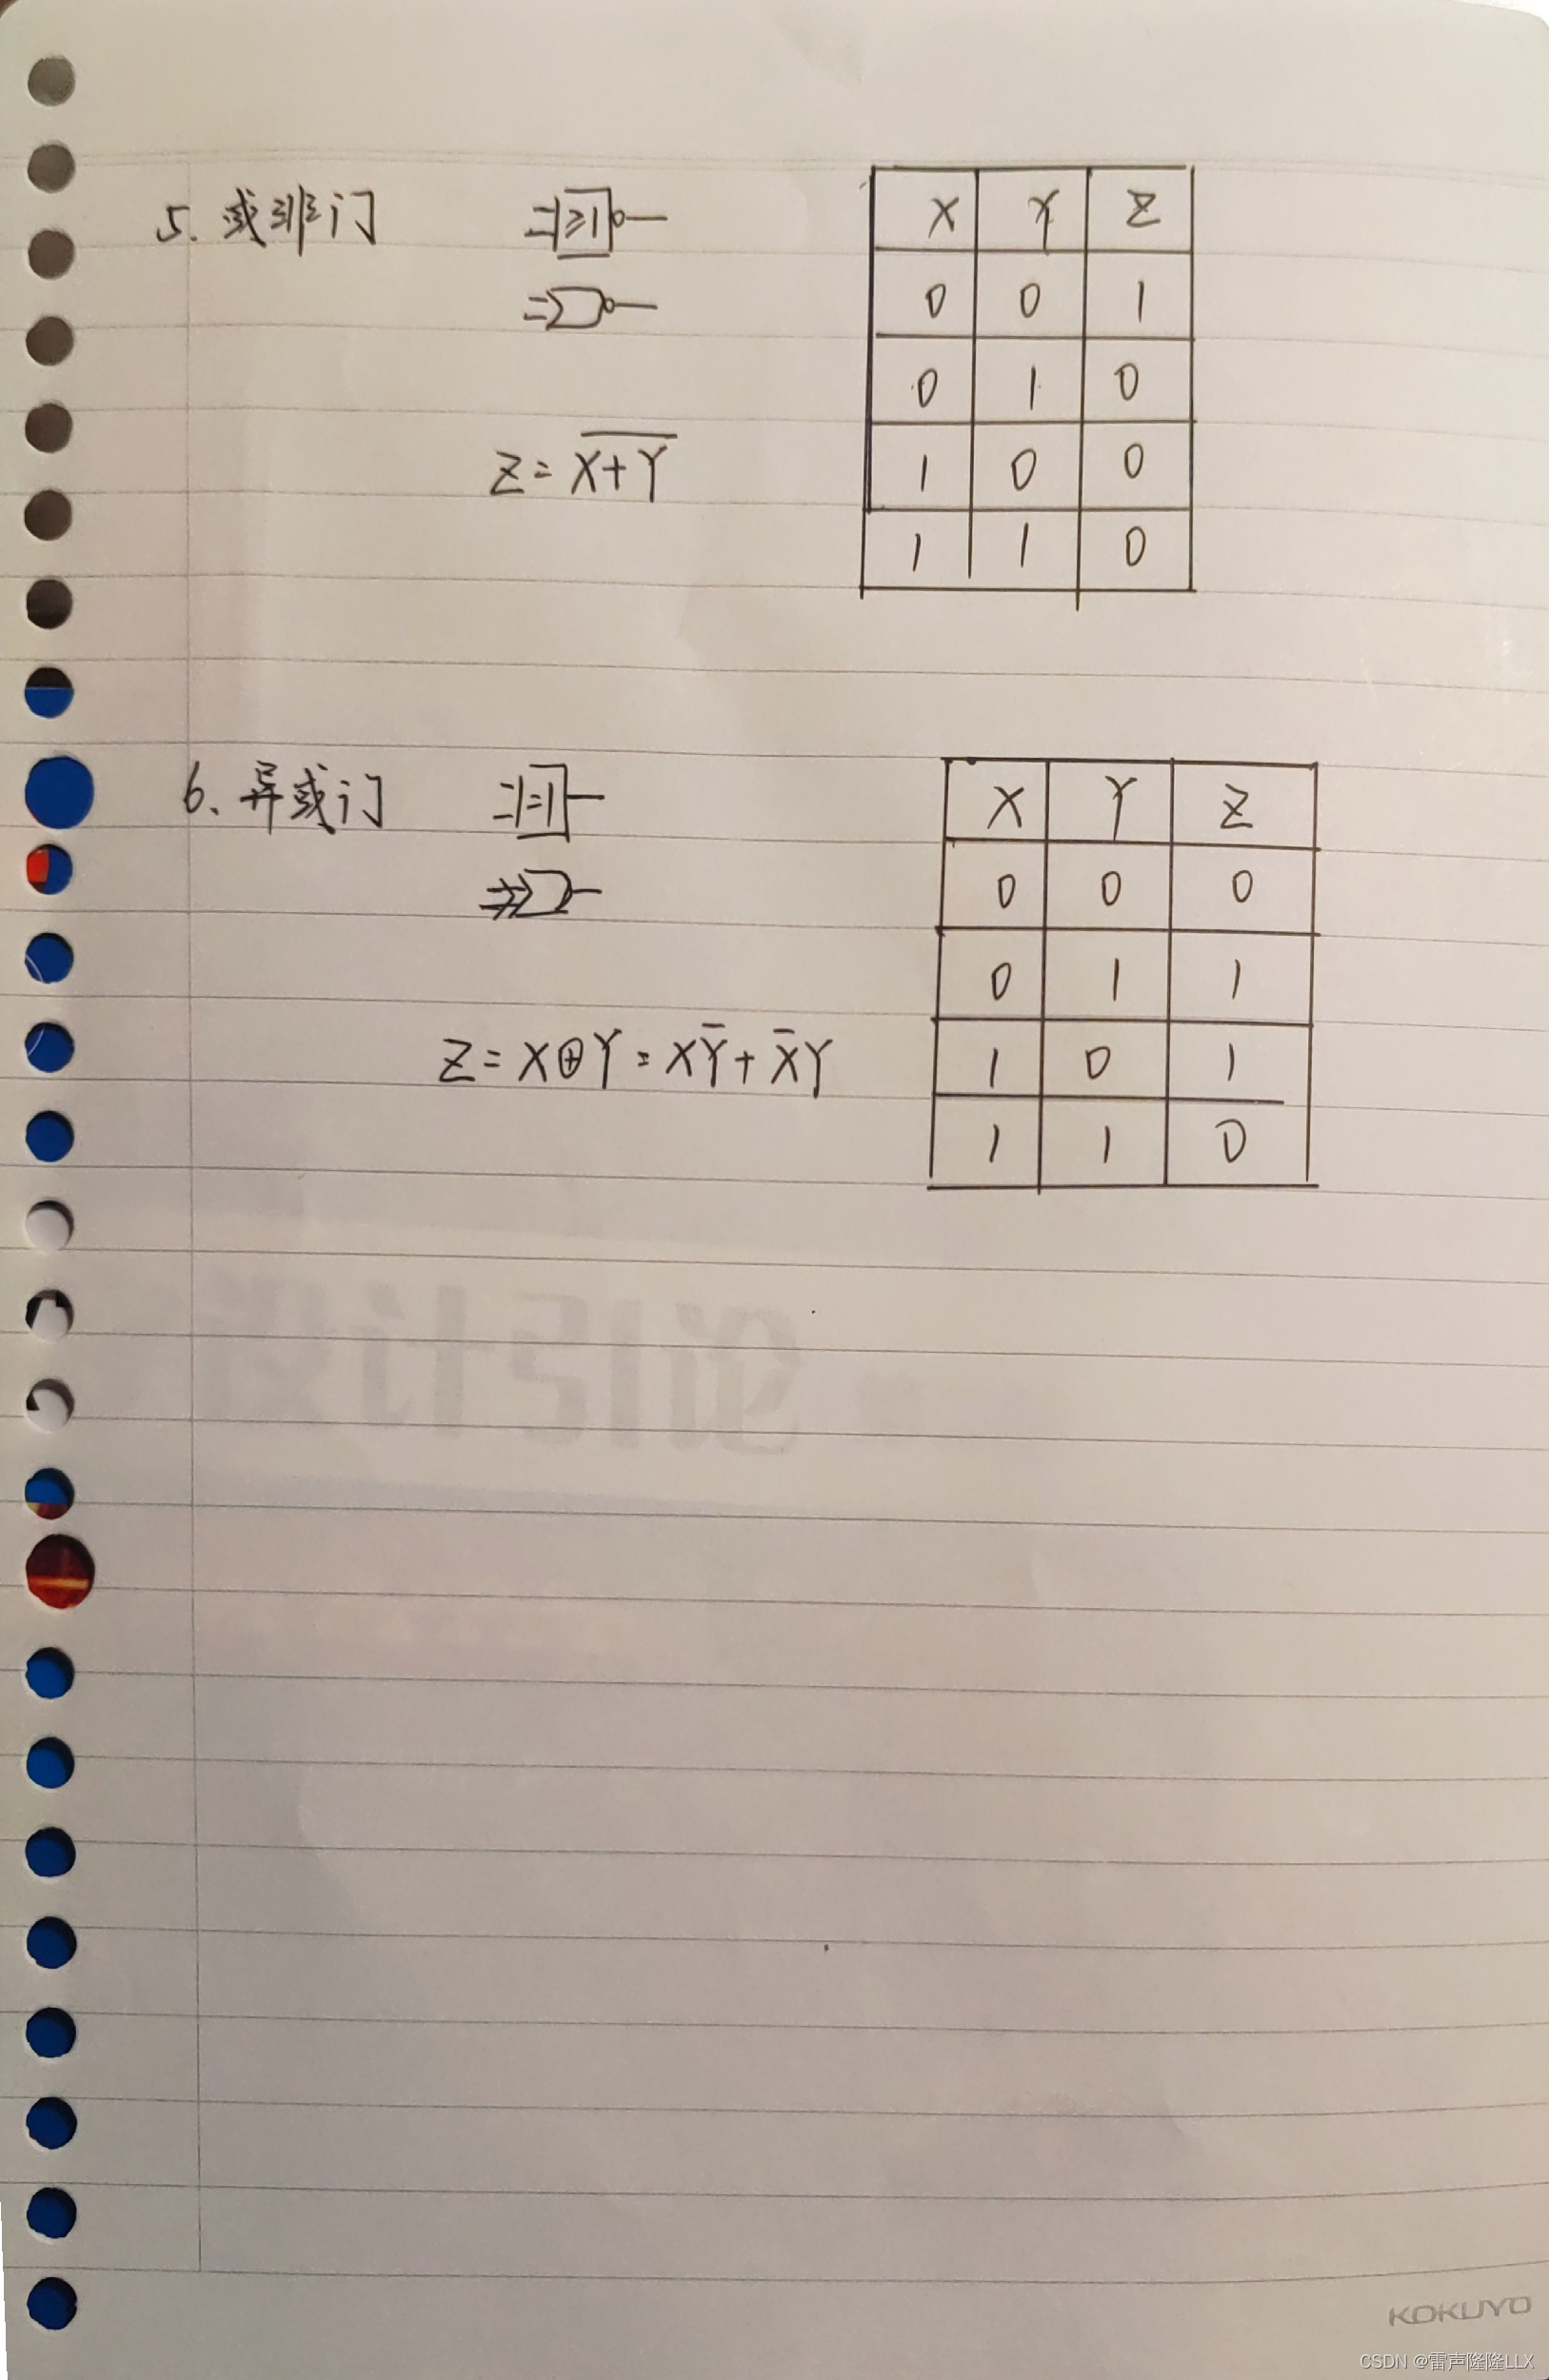 5. 或非门
≥1
Z = \overline{X+Y}
X Y Z
0 0 1
0 1 0
1 0 0
1 1 0
6. 异或门
=1
Z = X⊕Y = X\overline{Y} + \overline{X}Y
X Y Z
0 0 0
0 1 1
1 0 1
1 1 0
KOKUYO
CSDN @雷声隆隆LLX